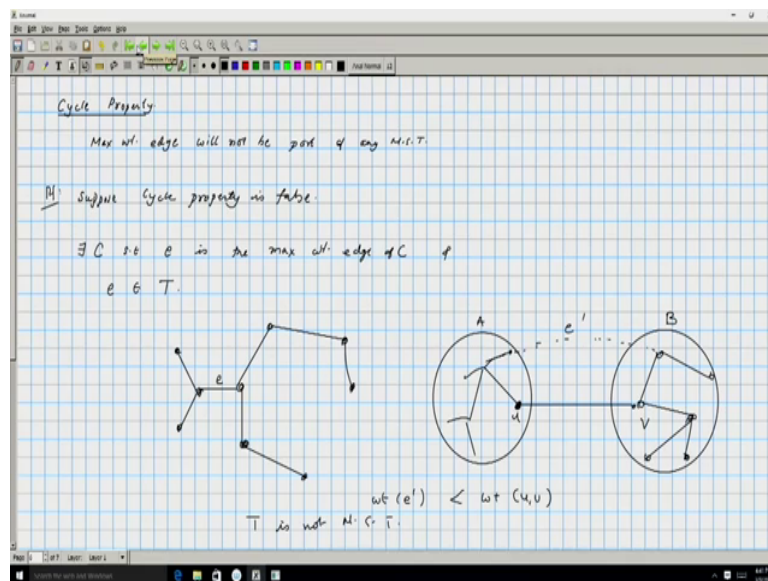 Journal
File Edit View Page Tools Options Help
Previous Page
Cycle Property.
Max wt. edge will not be part of any M.S.T.
Pf: Suppose Cycle property is false.
∃ C s.t e is the max wt. edge of C &
e ∈ T.
e
A e' B
u v
wt (e') < wt (u,v)
T is not M.S.T.
Page Layer: Layer 1